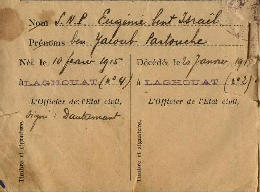 Nom S.N.P. Eugène bent Israël
Prénoms ben Yacoub Partouche
Né le 10 février 1915
Décédé le 20 janvier 19
à LAGHOUAT (n° 4)
à LAGHOUAT (n° 2)
L'Officier de l'Etat civil,
L'Officier de l'Etat civil,
signé: Dautremant
Timbre et signature.
Timbre et signature.